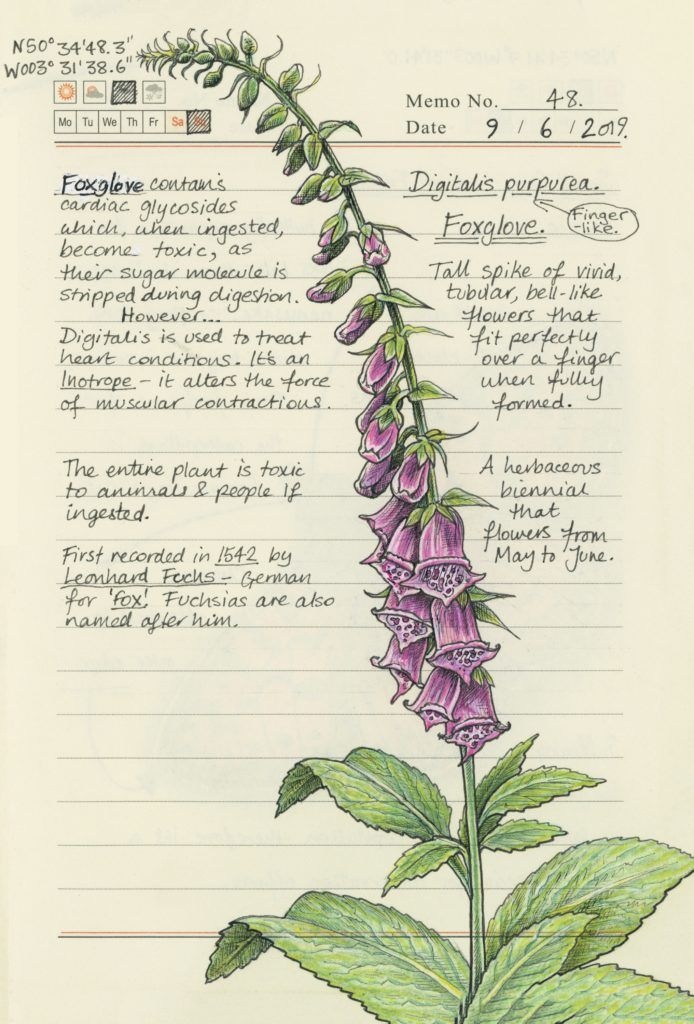 N50° 34'48.3"
W003° 31'38.6"
Mo Tu We Th Fr Sa
Memo No. 48.
Date 9 / 6 / 2019.
Foxglove contains
cardiac glycosides
which, when ingested,
become toxic, as
their sugar molecule is
stripped during digestion.
However...
Digitalis is used to treat
heart conditions. It's an
Inotrope – it alters the force
of muscular contractions.
The entire plant is toxic
to animals & people if
ingested.
First recorded in 1542 by
Leonhard Fuchs – German
for 'fox'. Fuchsias are also
named after him.
Digitalis purpurea.
Finger
-like.
Foxglove.
Tall spike of vivid,
tubular, bell-like
flowers that
fit perfectly
over a finger
when fully
formed.
A herbaceous
biennial
that
flowers from
May to June.